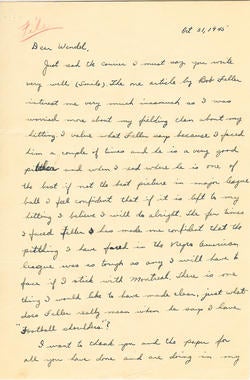 File
Oct 31, 1945
Dear Wendel,
Just read the Courier I must say you write
very well (Smile). The one article by Bob Feller
interest me very much inasmuch as I was
worried more about my fielding than about my
hitting. I value what Feller say because I faced
him a couple of times and he is a very good
pitcher and when I read where he is one of
the best if not the best picture in major league
ball I feel confident that if it is left to my
hitting I believe I will do alright. The few times
I faced Feller has made me confident that the
pitching I have faced in the Negro American
league was as tough as any I will have to
face if I stick with Montreal. There is one
thing I would like to have made clear, just what
does Feller really mean when he says I have
"Football shoulders"?
I want to thank you and the paper for
all you have done and are doing in my